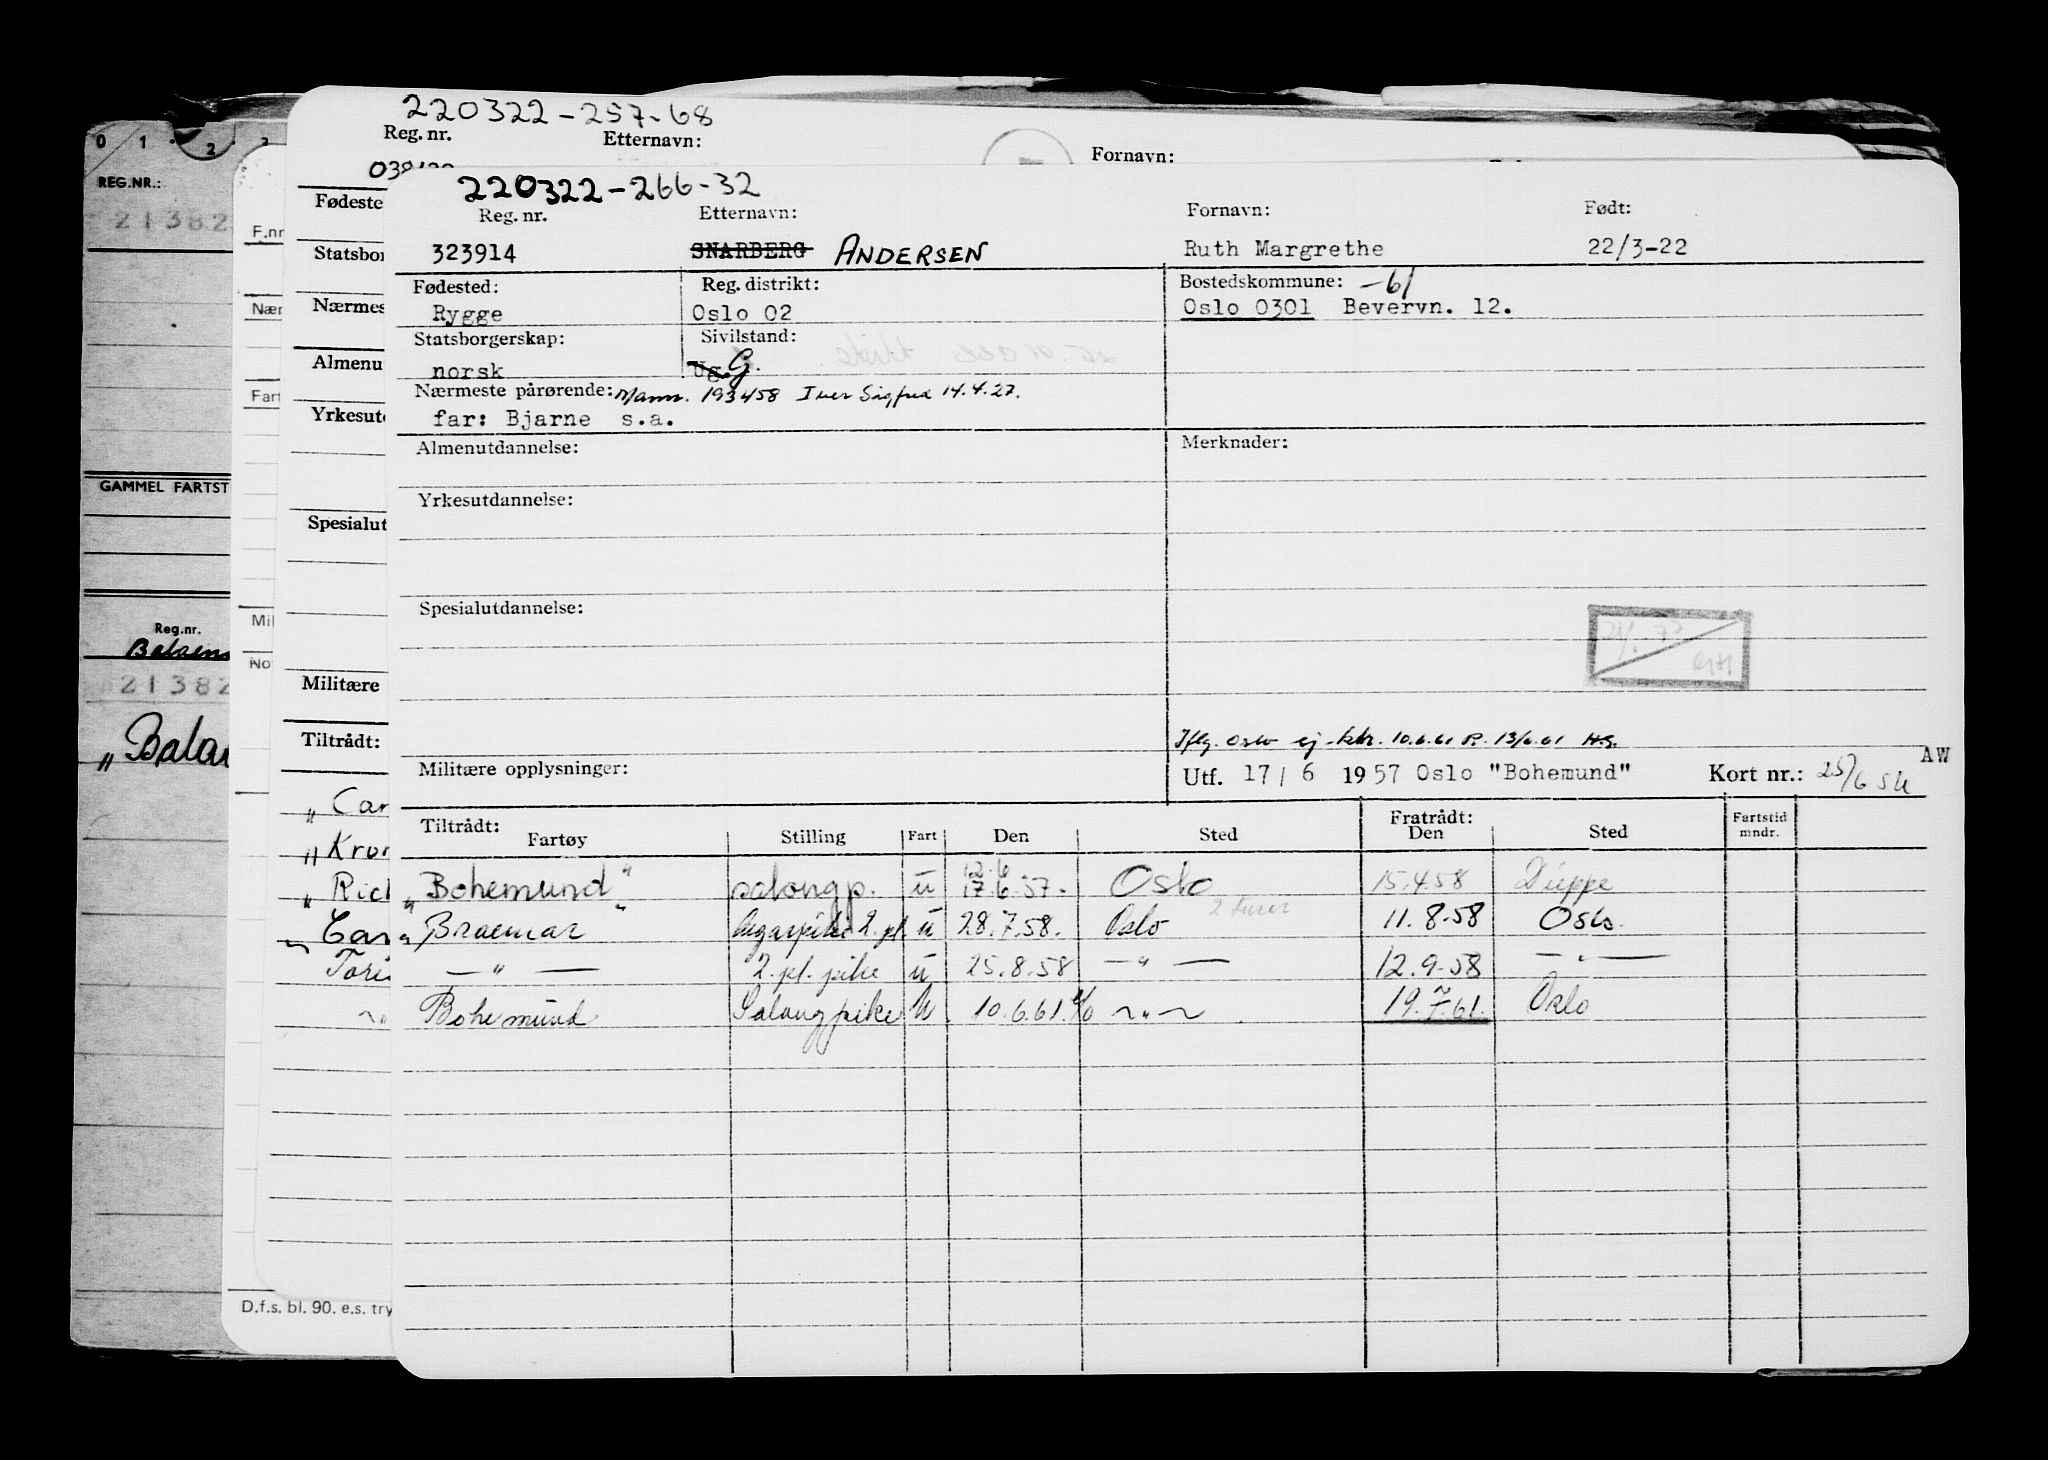 220322-257-68
Reg. nr. Etternavn: Fornavn:
0 1 2
REG.NR.:
21382
F.nr
Fødeste
Statsbor
Nærmes
Nær
Almenu
Fart
Yrkesut
GAMMEL FARTST
Spesialut
Reg.nr.
Mil
Balaen
No
21382
Militære
„Balae
Tiltrådt:
„ Car
„ Kron
„ Rich
„ Car
Toris
D.f.s. bl. 90. e.s. try
220322-266-32
Reg. nr. Etternavn: Fornavn: Født:
323914 SNARBERG ANDERSEN Ruth Margrethe 22/3-22
Fødested: Reg. distrikt: Bostedskommune: -61
Rygge Oslo 02 Oslo 0301 Bevervn. 12.
Statsborgerskap: Sivilstand:
norsk Ug. G.
Nærmeste pårørende: Mann. 193458 Iver Sigfred 14.4.27.
far: Bjarne s.a.
Almenutdannelse: Merknader:
Yrkesutdannelse:
Spesialutdannelse:
Iflg. Oslo ej 10.6.61 13/6.61 H.S.
Militære opplysninger: Utf. 17/ 6 1957 Oslo "Bohemund" Kort nr.: 25/6 54 AW
Tiltrådt: Fratrådt: Fartstid
Fartøy Stilling Fart Den Sted Den Sted mndr.
12.6
„Bohemund" salongp. u 17.6.57. Oslo 15.4.58 Dieppe
„Braemar" Cigarpike 2. pl. u 28.7.58. Oslo 2 turer 11.8.58 Oslo
— " — 2. pl. pike u 25.8.58 — " — 12.9.58 — " —
Bohemund Salongpike U 10.6.61. ~"~ 19.7.61. Oslo